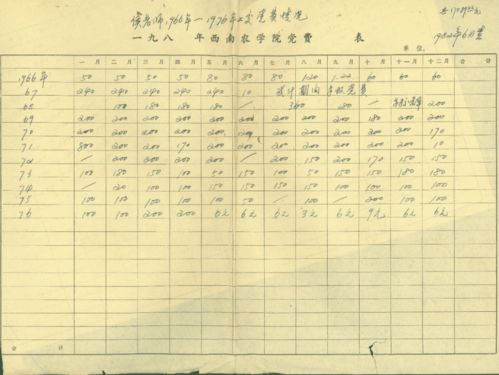 侯老师1966年—1976年上交党费情况
共1709.22元
一九八 年西南农学院党费 表
1982年6月
单位:
一月 二月 三月 四月 五月 六月 七月 八月 九月 十月 十一月 十二月 合计
1966年 50 50 50 50 80 80 80 1.20 1.22 60 60 60
67 240 240 240 240 240 10
68 100 180 180 180 — 360 180 — 200
69 200 200 200 200 200 200 200 200 200 180 200 200
70 200 200 200 200 200 200 200 200 200 200 200 170
71 800 200 200 170 200 200 200 200 200 200 200 10
72 — 200 200 200 200 — 200 150 200 170 150 150
73 100 180 150 100 50 150 100 50 150 150 180 180
74 — 20 100 100 150 150 150 150 100 100 100 100
75 100 100 100 100 100 50 — 100 — 200 100 100
76 100 100 200 200 6元 6元 6元 3元 6元 9元 6元 6元
合计